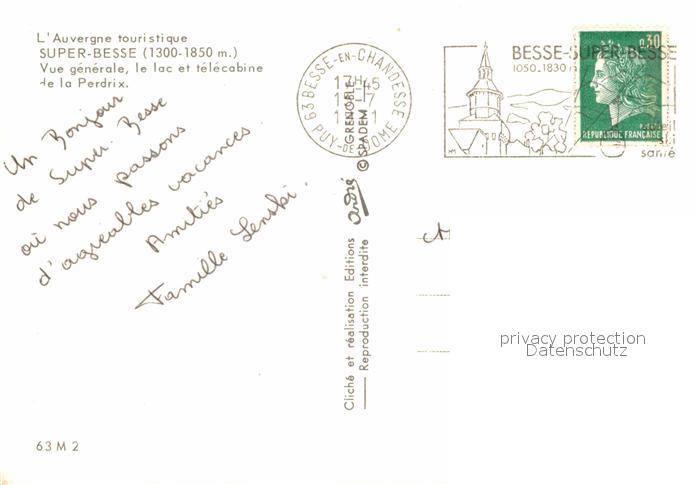 L'Auvergne touristique
SUPER-BESSE (1300-1850 m.)
Vue générale, le lac et télécabine
de la Perdrix.
Un Bonjour
de Super Besse
où nous passons
d'agréables vacances.
Amitiés
Famille Lenski.
63 M 2
Cliché et réalisation Editions André GRENOBLE
Reproduction interdite © SPADEM
63 BESSE-EN-CHANDESSE
17H45
PUY-DE-DOME
BESSE-SUPER-BESSE
1050-1830
0,30
REPUBLIQUE FRANÇAISE
ski
santé
privacy protection
Datenschutz